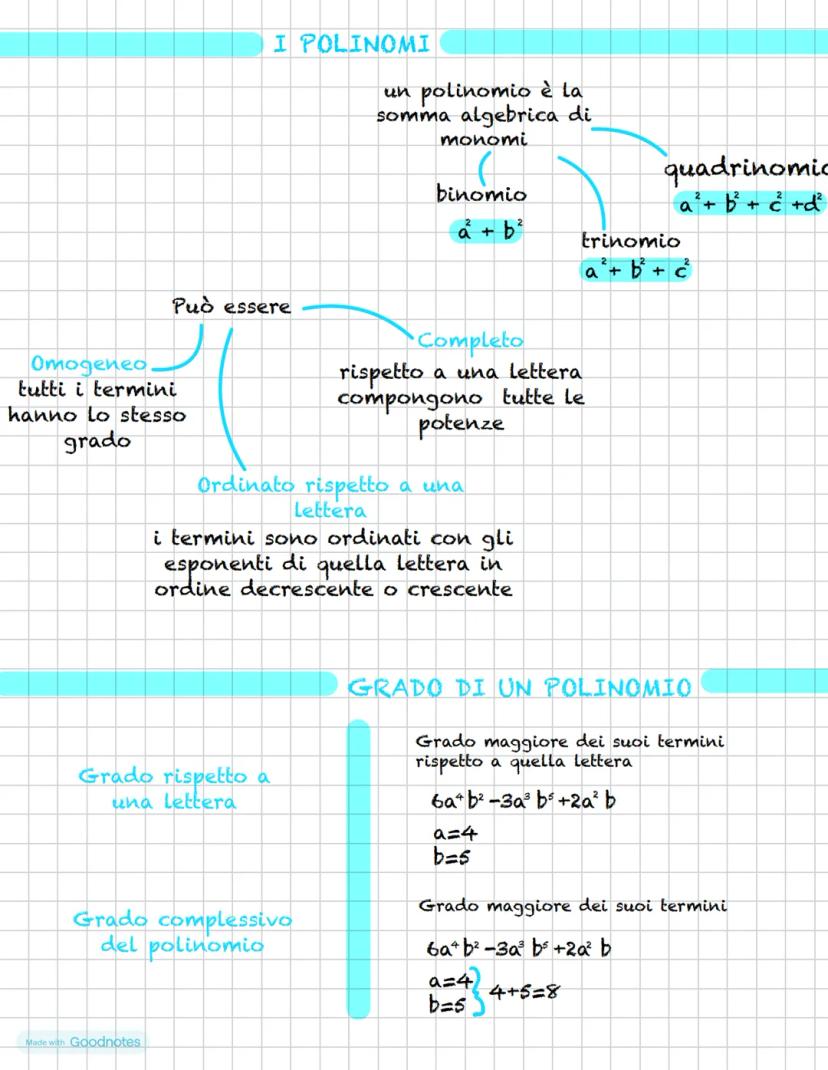 I POLINOMI
un polinomio è la
somma algebrica di
monomi
binomio
a² + b²
trinomio
a² + b² + c²
quadrinomio
a² + b² + c² + d²
Può essere
Omogeneo
tutti i termini
hanno lo stesso
grado
Completo
rispetto a una lettera
compongono tutte le
potenze
Ordinato rispetto a una
lettera
i termini sono ordinati con gli
esponenti di quella lettera in
ordine decrescente o crescente
GRADO DI UN POLINOMIO
Grado rispetto a
una lettera
Grado maggiore dei suoi termini
rispetto a quella lettera
6a⁴ b² -3a³ b⁵ +2a² b
a=4
b=5
Grado complessivo
del polinomio
Grado maggiore dei suoi termini
6a⁴ b² -3a³ b⁵ +2a² b
a=4
b=5
4+5=8
Made with Goodnotes